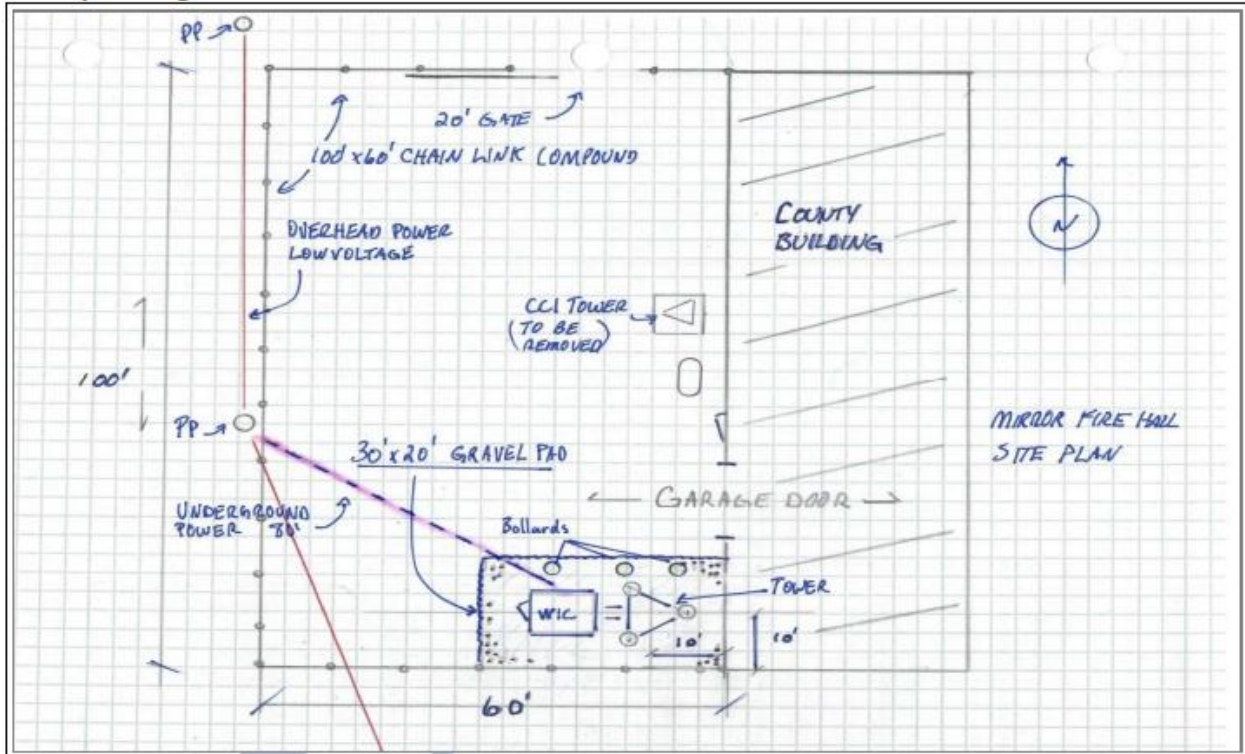 PP
20' GATE
100'x60' CHAIN LINK COMPOUND
OVERHEAD POWER
LOW VOLTAGE
COUNTY
BUILDING
N
CCI TOWER
(TO BE
REMOVED)
100'
PP
30'x20' GRAVEL PAD
MIRROR FIRE HALL
SITE PLAN
UNDERGROUND
POWER 80'
GARAGE DOOR
Bollards
TOWER
WIC
10'
10'
60'